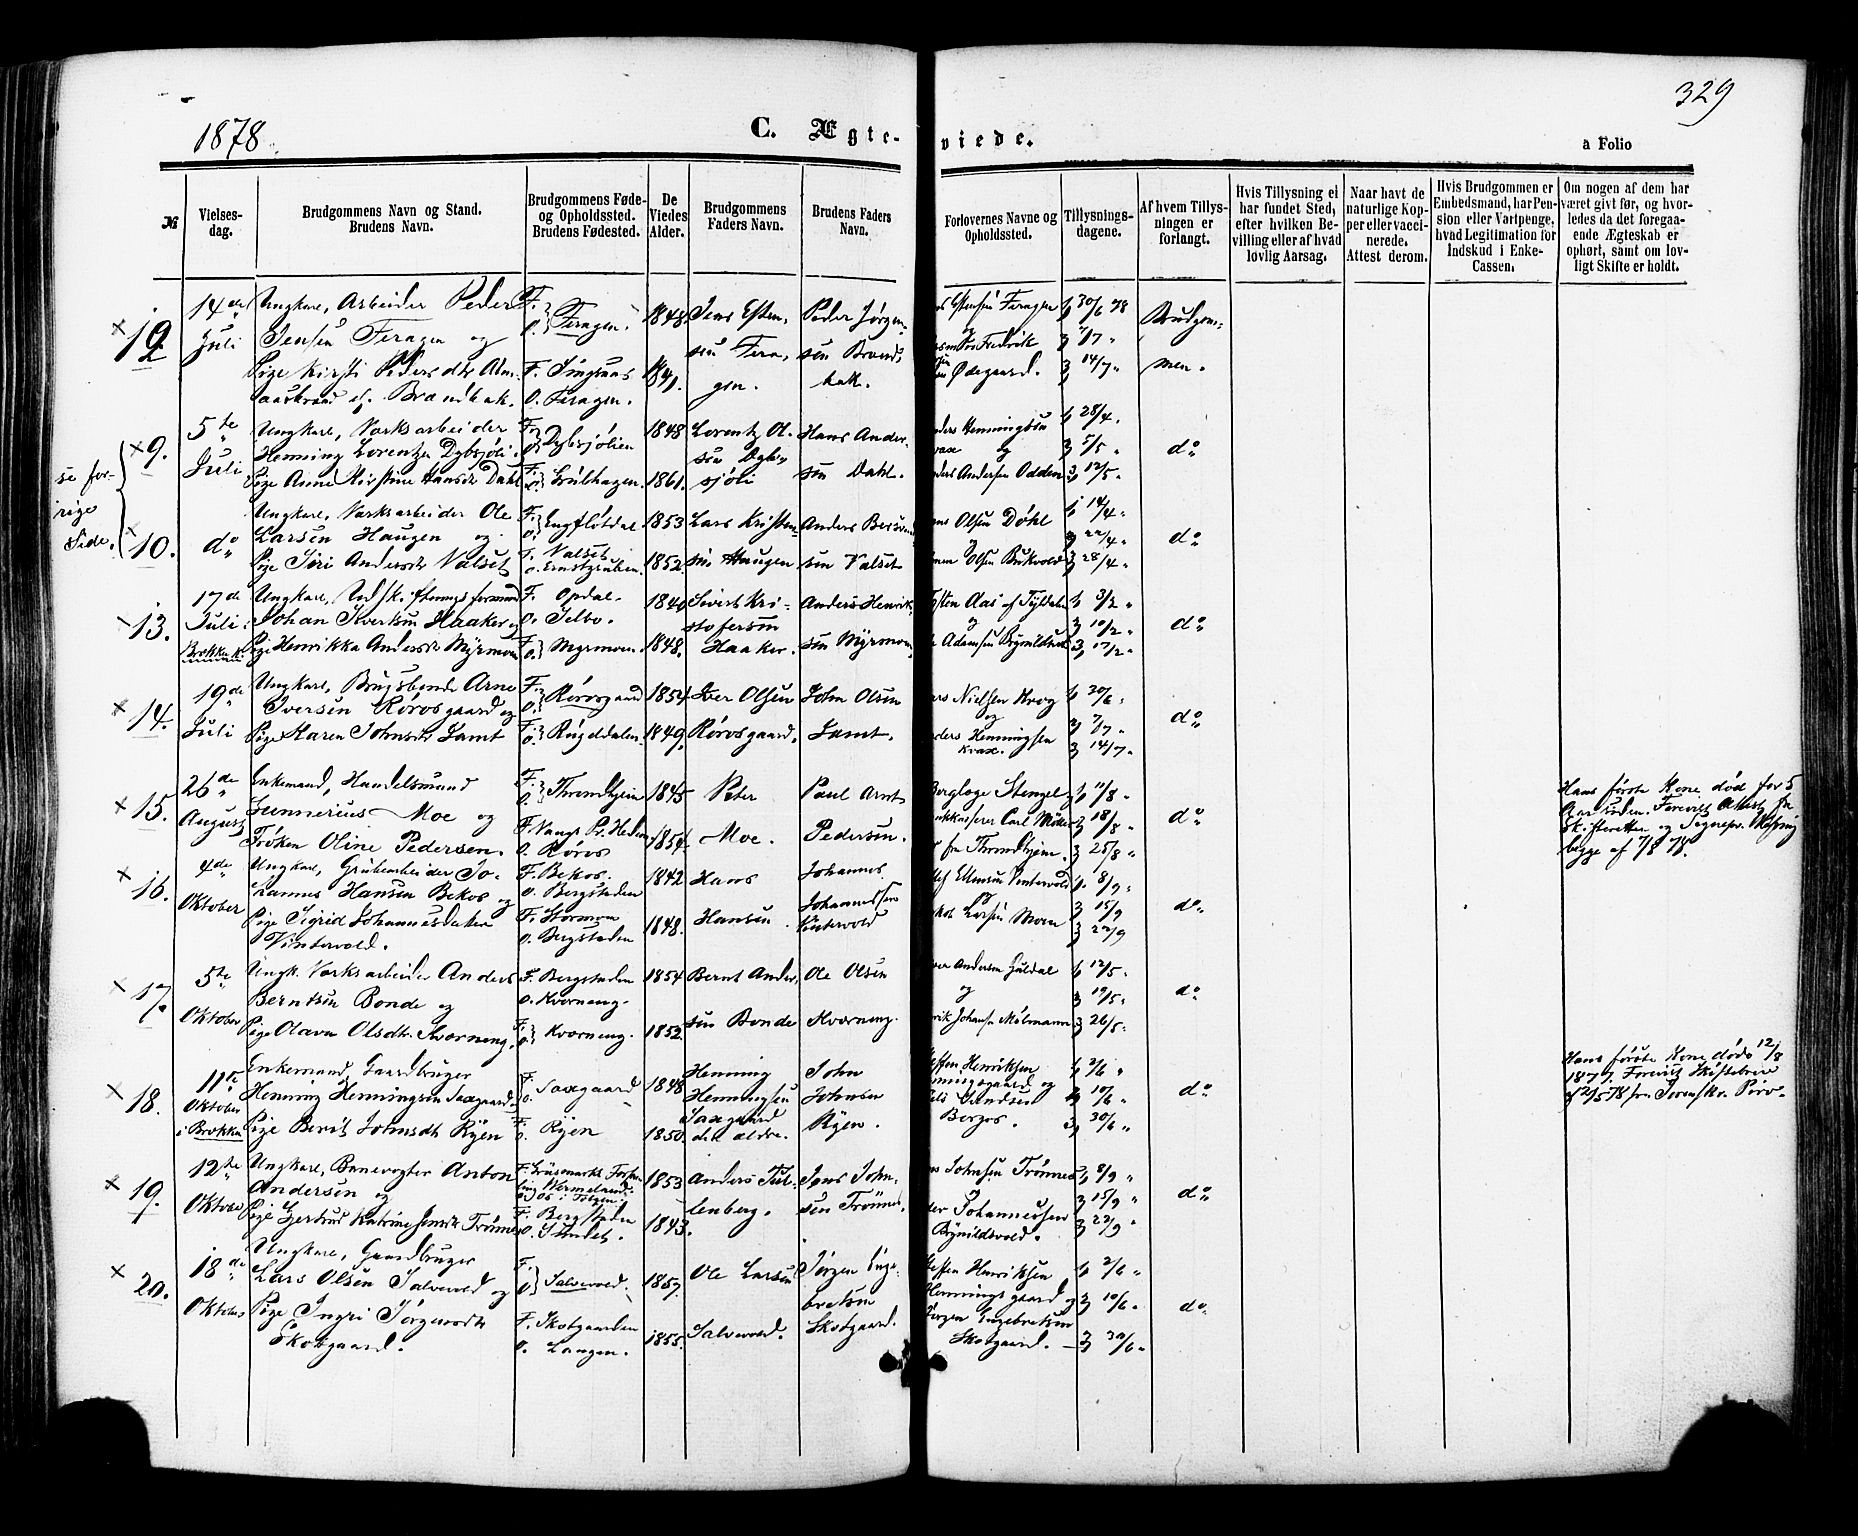 329
1878.
C. Ægte-
viede.
a Folio
№
Vielses-
dag.
Brudgommens Navn og Stand.
Brudens Navn.
Brudgommens Føde-
og Opholdssted.
Brudens Fødested.
De
Viedes
Alder.
Brudgommens
Faders Navn.
Brudens Faders
Navn.
Forlovernes Navne og
Opholdssted.
Tillysnings-
dagene.
Af hvem Tillys-
ningen er
forlangt.
Hvis Tillysning ei
har fundet Sted,
efter hvilken Be-
villing eller af hvad
lovlig Aarsag.
Naar havt de
naturlige Kop-
per eller vacci-
nerede.
Attest derom.
Hvis Brudgommen er
Embedsmand, har Pen-
sion eller Vartpenge,
hvad Legitimation for
Indskud i Enke-
Cassen.
Om nogen af dem har
været givt før, og hvor-
ledes da det foregaa-
ende Ægteskab er
ophørt, samt om lov-
ligt Skifte er holdt.
12
14de
Juli
Ungkarl, Arbeider Peder
Jensen Feragen og
Pige Kirsti Pedersdtr
Brændbak.
F.
O. Feragen.
F. Singsaas
O. Feragen.
1848.
1841.
Jens Esten-
sen Fera-
gen.
Peder Jørgen-
sen Brænd-
bak.
Estensen Feragen
og
Fredrik
Ødegaard.
1, 30/6 78
2, 7/7 "
3, 14/7 "
Brudgom-
men.
se for-
rige
Side.
9.
5te
Juli
Ungkarl, Værksarbeider
Henning Lorentzen Dybsjøli
Pige Anne Kirstine Hansdtr Dahl
F.
O. Dybsjølien
F.
O. Grülhagen.
1848
1861.
Lorentz Ol-
sen Dyb-
sjøli
Hans Ander-
sen Dahl.
ders Henningsen
Krax og
ders Andersen Odden
1, 28/4.
2, 5/5 "
3, 12/5.
do
10.
do
Ungkarl, Værksarbeider Ole
Larsen Haugen og
Pige Siri Andersdtr Valset
F.
O. Engflotdal
F. Valset
O. Ernstgruben.
1853
1852.
Lars Kristen-
sen Haugen
Anders Bersvend-
sen Valset
ns Olsen Døhl
og
Olsen Bukvold
1, 14/4.
2, 22/4.
3, 28/4 "
do
13.
17de
Juli
Brekken K.
Ungkarl,
Johan Sivertsen Haaker og
Pige Henrikka Andersdtr Myrmoen
F. Opdal.
O. Selbo.
F.
O. Myrmoen.
1848.
Sivert Kri-
stofersen
Haaker.
Anders Henrik-
sen Myrmoen
sten Aas af Tyldalen
og
Adamsen Brynildsvold
1, 3/2 "
2, 10/2 "
3, 17/2 "
do
14.
19de
Juli
Ungkarl, Brugsbonde Arne
Iversen Rørosgaard og
Pige Karen Johnsdtr Lamt
F.
O. Rørosgaard
F.
O. Rugldalen.
1854.
1849.
Iver Olsen
Rørosgaard.
John Olsen
Lamt.
Lars Nielsen Krog
og
ders Henningsen
Krax.
1, 30/6.
2, 7/7 "
3, 14/7 "
do
15.
26de
August
Enkemand, Handelsmand
Gunnerius Moe og
Frøken Oline Pedersen.
F.
O. Throndhjem
F. Vang Pr. Heden
O. Røros
1845
1854.
Peter
Moe.
Paul Arnt
Pedersen.
Berglæge Stenzel og
kasserer Carl Møller
fra Throndhjem.
1, 11/8 "
2, 18/8 "
3, 25/8 "
do
Hans første Kone død for 5
Aar siden. Forevist Attest fra
Skifteretten og Sognepr.
begge af 7/8 78.
16.
4de
Oktober
Ungkarl, Grubearbeider Jo-
hannes Hansen Bekos og
Pige Sigrid Johannesdatter
Vintervold.
F. Bekos.
O. Bergstaden
F. Stormoen
O. Bergstaden
1842
1848.
Hans
Hansen
Johannes
Johannessen
Vintervold
Ellensen Vintervold
og
kob Larsen Moen
1, 8/9.
2, 15/9
3, 22/9
do
17.
5te
Oktober
Ungk. Værksarbeider Anders
Berntsen Bonde og
Pige Olava Olsdtr. Kværneng.
F. Bergstaden
O. Kværneng.
F.
O. Kværneng.
1854
1852.
Bernt Ander-
sen Bonde
Ole Olsen
Kværneng.
Iver Andersen Guldal
og
rik Johansen Mølmann
1, 12/5.
2, 19/5.
3, 26/5.
do
18.
11te
Oktober
i Brekken
Enkemand, Gaardbruger
Henning Henningsen Saxgaard
Pige Berit Johnsdtr Ryen
F.
O. Saxgaard
F.
O. Ryen
1848
1850.
Henning
Henningsen
Saxgaard
den ældre.
John
Johnsen
Ryen.
Steffen Henriksen
Henningsgaard og
Bergos.
1, 2/6 "
2, 10/6 "
3, 30/6 "
do
Hans første Kone døde 12/8
1877. Forevist Skiftebrev
af 21/5 78 fra Sorenskr.
19.
12te
Oktober
Ungkarl, Banevogter Anton
Andersen og
Pige Gjertrud Katrine Jensdtr Trønnes
F. Grüsmarks
Vermeland
O. Os i Tolgen.
F. Bergstaden
O. Sundet.
1853
1843.
Anders Tul-
lenberg.
Jens John-
sen Trønnes.
ns Johnsen Trønnes
og
der Johannessen
Brynildsvold.
1, 8/9 "
2, 15/9 "
3, 22/9 "
do
20.
18de
Oktober
Ungkarl, Gaardbruger
Lars Olsen Salvevold og
Pige Ingri Jørgensdtr
Skotgaard.
F.
O. Salvevold.
F. Skotgaarden
O. Langen.
1857.
1855.
Ole Larsen
Salvevold.
Jørgen Enge-
bretsen
Skotgaard.
Steffen Henriksen
Henningsgaard og
Jørgen Engebretsen
Skotgaard.
1, 2/6 "
2, 10/6 "
3, 30/6 "
do